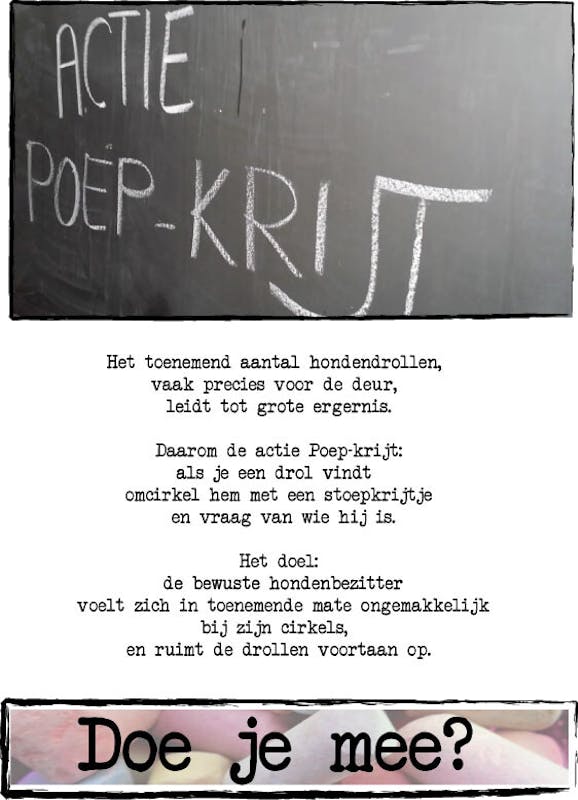 ACTIE
POEP-KRIJT
Het toenemend aantal hondendrollen,
vaak precies voor de deur,
leidt tot grote ergernis.
Daarom de actie Poep-krijt:
als je een drol vindt
omcirkel hem met een stoepkrijtje
en vraag van wie hij is.
Het doel:
de bewuste hondenbezitter
voelt zich in toenemende mate ongemakkelijk
bij zijn cirkels,
en ruimt de drollen voortaan op.
Doe je mee?